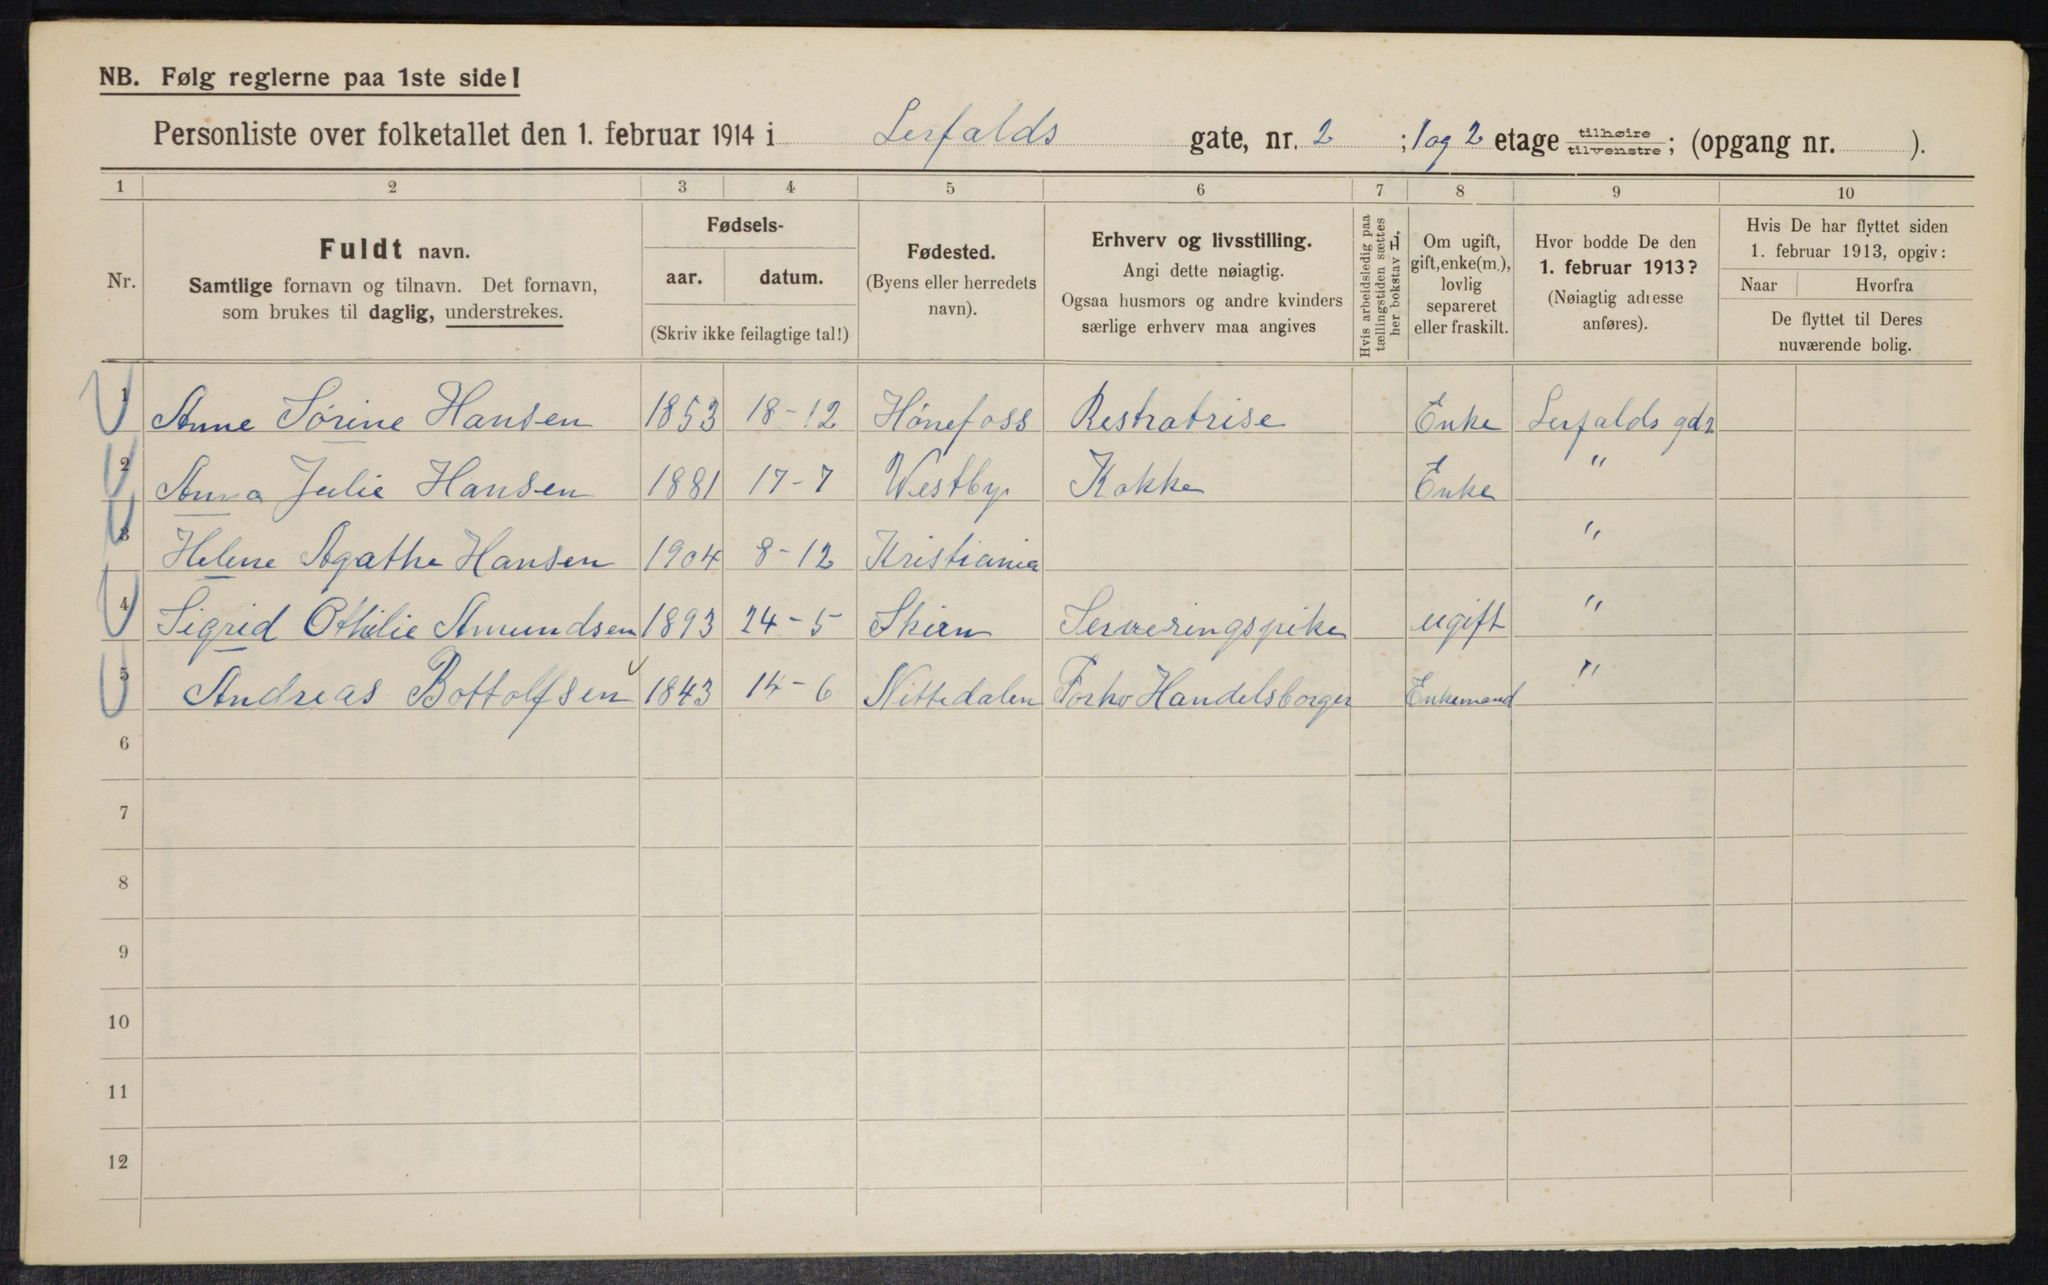 NB. Følg reglerne paa 1ste side!
Personliste over folketallet den 1. februar 1914 i Lerfalds gate, nr. 2 ; 1 og 2 etage tilhøire tilvenstre; (opgang nr. ).
1 2 3 4 5 6 7 8 9 10
Nr.
Fuldt navn.
Samtlige fornavn og tilnavn. Det fornavn,
som brukes til daglig, understrekes.
Fødsels-
aar. datum.
(Skriv ikke feilagtige tal!)
Fødested.
(Byens eller herredets
navn).
Erhverv og livsstilling.
Angi dette nøiagtig.
Ogsaa husmors og andre kvinders
særlige erhverv maa angives
Hvis arbeidsledig paa
tællingstiden sættes
her bokstav L.
Om ugift,
gift, enke(m.),
lovlig
separeret
eller fraskilt.
Hvor bodde De den
1. februar 1913?
(Nøiagtig adresse
anføres).
Hvis De har flyttet siden
1. februar 1913, opgiv:
Naar Hvorfra
De flyttet til Deres
nuværende bolig.
1 Anne Sørine Hansen 1853 18-12 Hønefoss Restratrise Enke Lerfalds gd 2
2 Anna Julie Hansen 1881 17-7 Westby Kokke Enke "
3 Helene Agathe Hansen 1904 8-12 Kristiania "
4 Sigrid Othilie Amundsen 1893 24-5 Skien Serveringspike ugift "
5 Andreas Bottolfsen 1843 14-6 Nittedalen Forhv Handelsborger Enkemand "
6
7
8
9
10
11
12